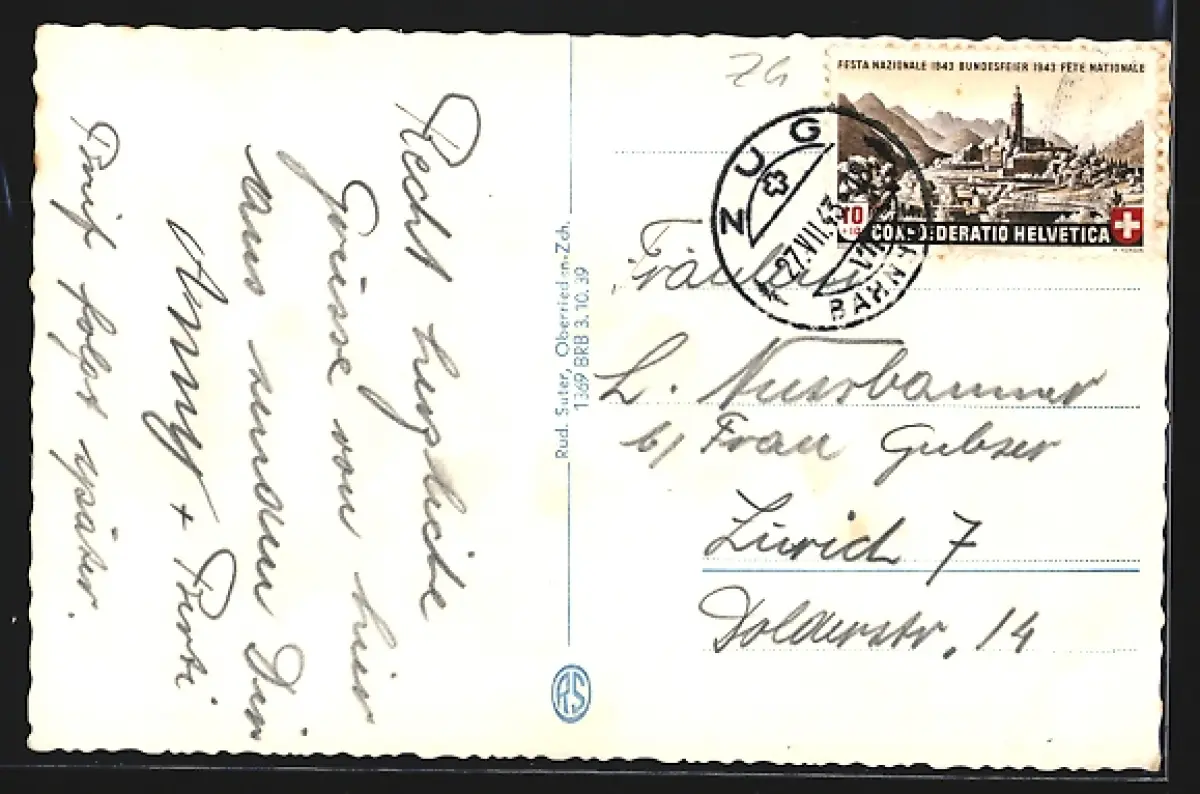 Recht herzliche
Grüsse von hier
aus senden Dir
Anny + Berti
Brief folgt später.
Rud. Suter, Oberrieden-Zch.
1369 BRB 3.10.39
RS
ZG
FESTA NAZIONALE 1943 BUNDESFEIER 1943 FÊTE NATIONALE
10
+10
CONFOEDERATIO HELVETICA
ZUG
27.VII.43
BAHNH
Fräulein
L. Nussbaumer
b/ Frau Gubser
Zürich 7
Dolderstr. 14